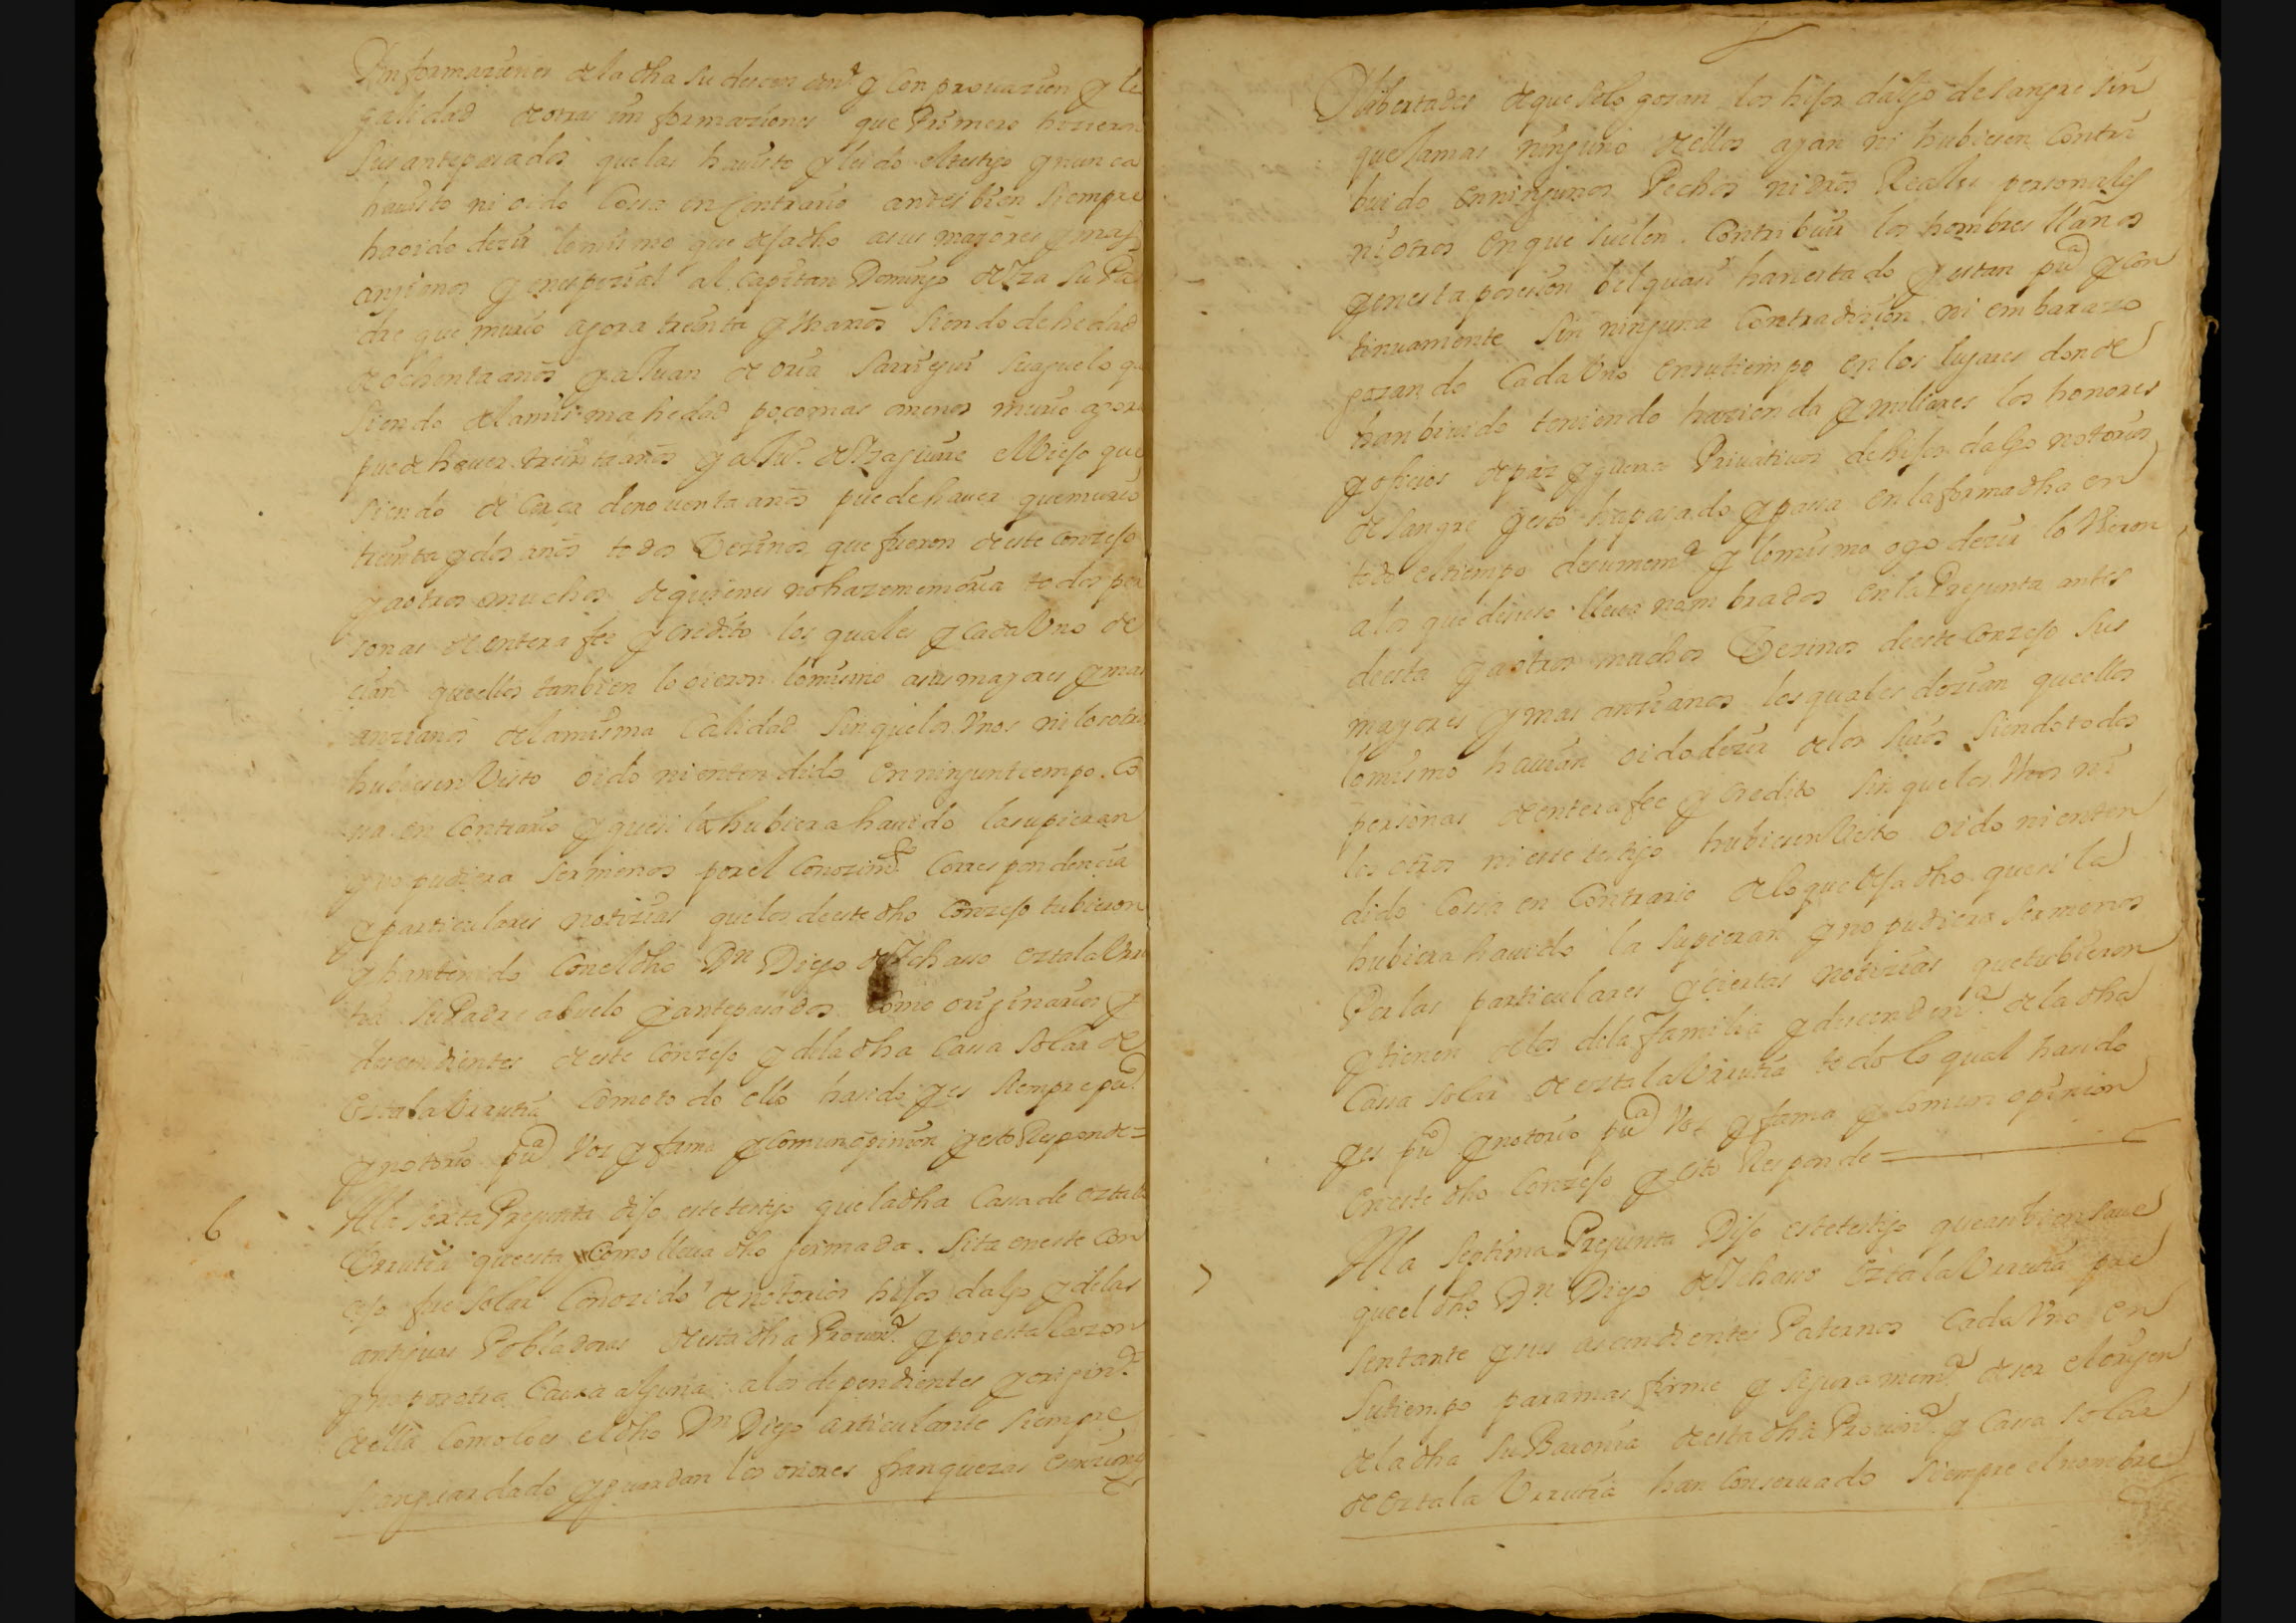 Informaziones de la dha su descendenª y conprovazion y le
galidad de otras informaziones que Primero hizieron
sus antepasados que las ha visto y leido el testigo y nunca
ha visto ni oido Cossa en Contrario antes bien siempre
ha oido dezir lo mismo que dija dho a sus mayores y mas
anzianos y en espezial al Capitan Domingo de Iza su Pa
dre que murio agora treinta y tres años siendo de hedad
de ochenta años y a Juan de oria Sarrigui su aguelo que
siendo de la misma hedad poco mas o menos murio agora
puede haver treinta años y a Juº de Izaguirre el Viejo que
siendo de Cerca de noventa años puede haver que murio
treinta y dos años todos Vezinos que fueron de este Conzejo
y a otros muchos de quienes no haze memoria todos per
sonas de entera fee y Credito los quales y Cada Uno de
zian que ellos tanbien lo oieron lo mismo a sus mayores y mas
anzianos de la misma Calidad sin que los Unos ni los otros
hubiesen Visto oido ni entendido en ningun tiempo Co
sa en Contrario y que si la hubiera havido la supieran
y no pudiera ser menos por el Conozimtº Correspondencia
y particulares notizias que los de este dho Conzejo tubieron
y han tenido Con el dho Dn Diego de Ichaso oztala Urru
tia su Padre abuelo y antepasados Como orijinarios y
descendientes de este Conzejo y de la dha Cassa Solar de
oztala Urrutia Como todo ello ha sido y es siempre puᶜᵒ
y notorio puᶜᵃ Voz y fama y Comun opinion y esto Responde=
6 A la sexta Pregunta dijo este testigo que la dha Cassa de oztala
Urrutia que esta Como lleva dho fermada. Sita en este Con
zejo fue Solar Conozido de notorios hijos dalgo y de las
antiguas Pobladoras de esta dha Provinª y por esta Razon
y no por otra Causa alguna a los dependientes y orijinˢ
de ella Como lo es el dho Dn Diego articulante Siempre
se an guardado y guardan los onores franquezas
Y libertades de que solo gozan los hijos dalgo de sangre sin
que Jamas ninguno de ellos ayan ni hubiesen Contri
buido en ningunos Pechos ni dros Reales personales
ni otros en que suelen Contribuir los hombres llanos
y en esta posesion bel quasi han estado y estan puᶜᵃ y Con
tinuamente sin ninguna Contradizion ni embarazo
gozando Cada Uno en su tiempo en los lugares donde
han bivido teniendo hazienda y millares los honores
y ofizios de paz y guerra Privativos de hijos dalgo notorios
de sangre y esto ha pasado y passa en la forma dha en
todo el tiempo de su memª y lo mismo oyo dezir lo Vieron
a los que de suso lleva nombrados en la Pregunta antes
de esta y a otros muchos Vezinos de este Conzejo sus
mayores y mas anzianos los quales dezian que ellos
lo mismo havian oido dezir de los suios siendo todos
personas de entera fee y Credito sin que los Unos ni
los otros ni este testigo hubiesen Visto oido ni enten
dido Cossa en Contrario de lo que deja dho que si la
hubiera havido la supieran y no pudiera ser menos
Por las particulares y ciertas notizias que tubieron
y tienen de los de la familia y descendenª de la dha
Cassa solar de oztala Urrutia todo lo qual ha sido
y es puᶜᵒ y notorio puᶜᵃ Voz y fama y Comun opinion
en este dho Conzejo y esto Responde=
7 A la septima Pregunta Dijo este testigo que asi bien save
que el dho Dn Diego de Ichaso oztala Urrutia pre
sentante y sus ascendientes Paternos Cada Uno en
su tiempo para mas firme y segura memª de ser el orijen
de la dha su Baronia de esta dha Provinª y Cassa solar
de oztala Urrutia han Conservado siempre el nombre